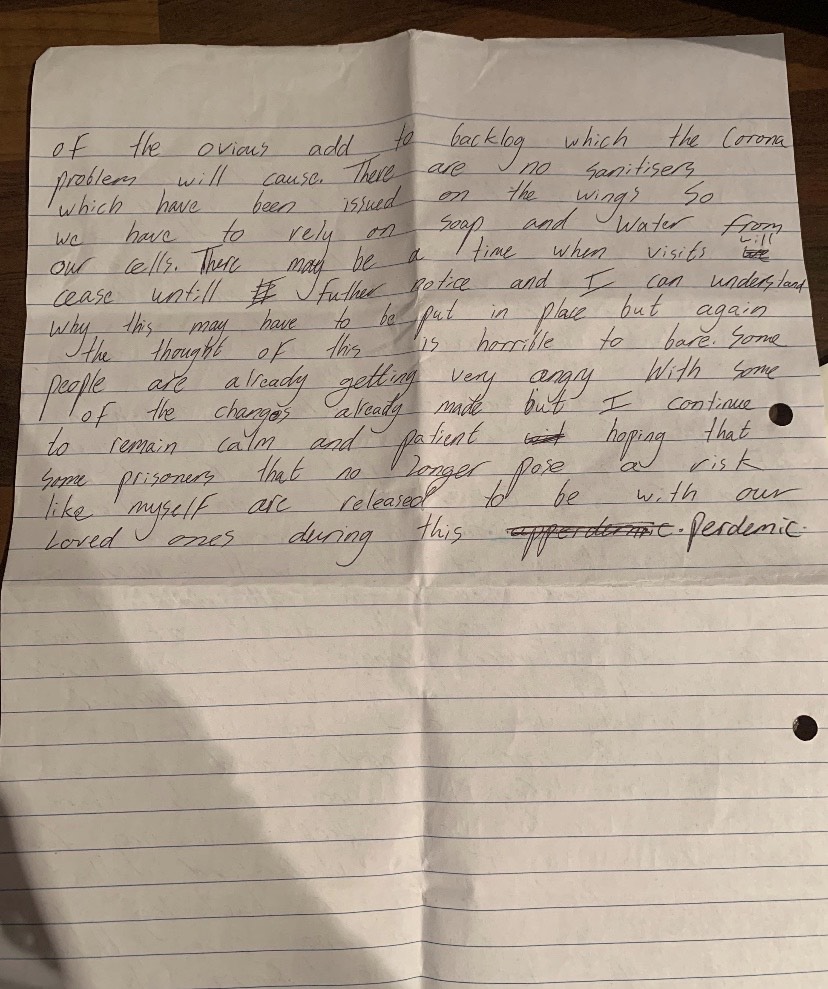 of the ovious add to backlog which the Corona
problem will cause. There are no sanitisers
which have been issued on the wings so
we have to rely on soap and water from
our cells. There may be a time when visits will
cease untill futher notice and I can understand
why this may have to be put in place but again
the thought of this is horrible to bare. Some
people are already getting very angry with some
of the changes already made but I continue
to remain calm and patient hoping that
some prisoners that no longer pose a risk
like myself are released to be with our
loved ones during this apperdemic. Perdemic.